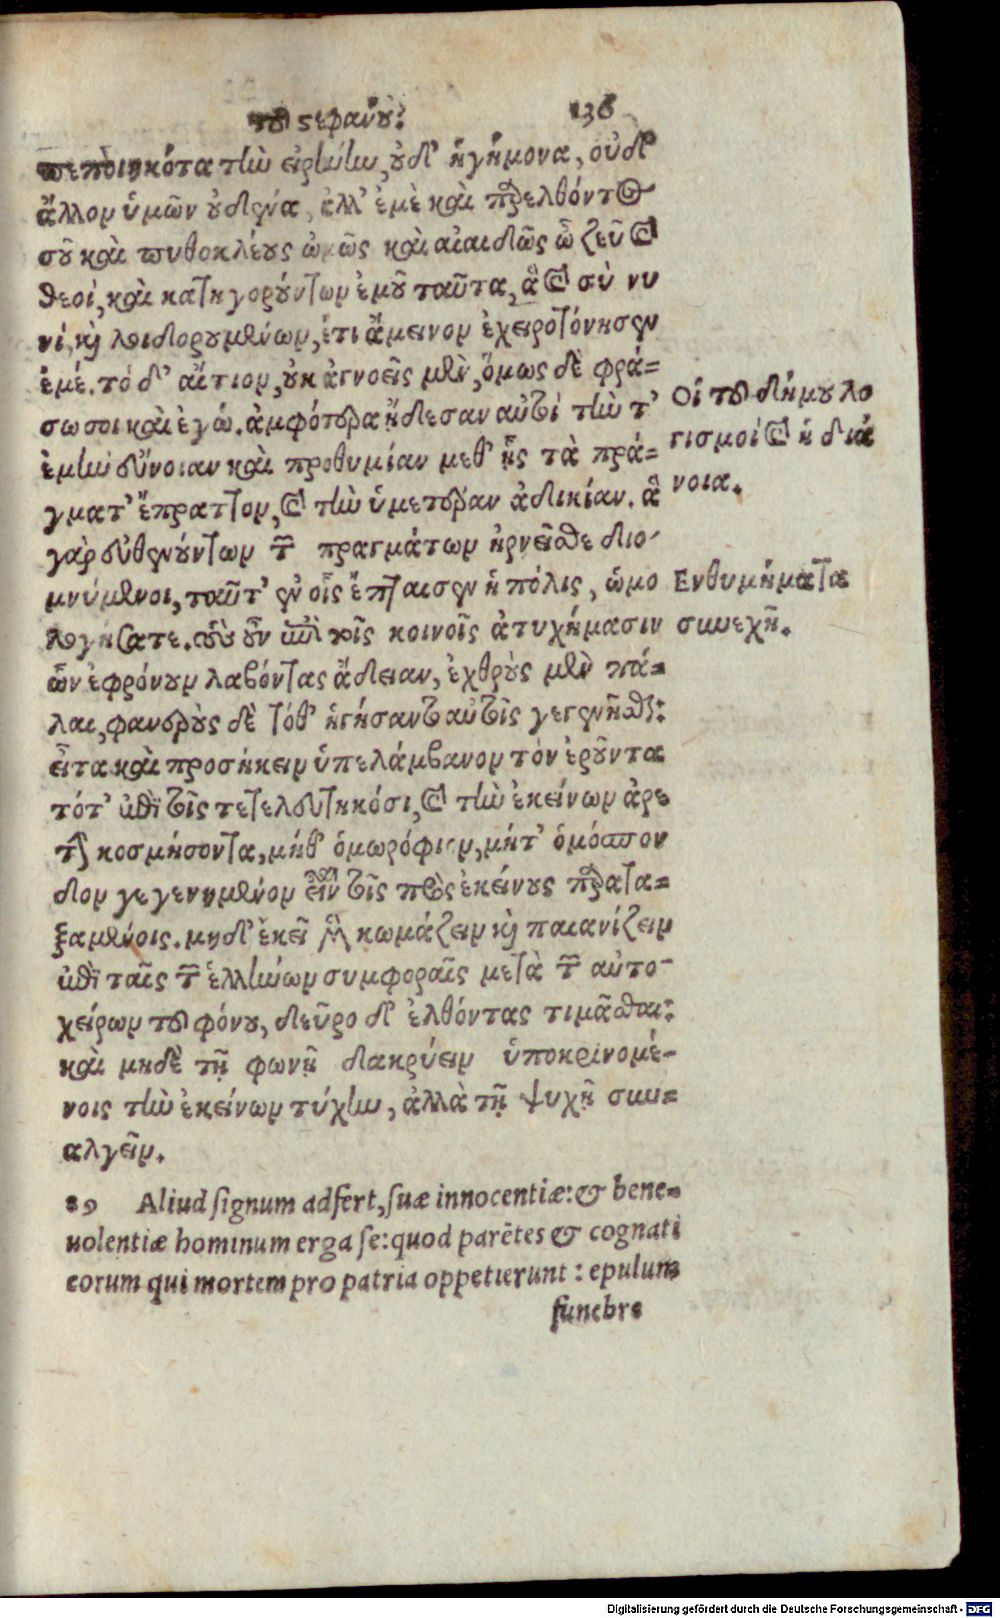 τοῦ στεφάνου. 136
πεποιηκότα τὴν εἰρήνην, οὐδ' ἡγήμονα, οὐδ'
ἄλλον ὑμῶν οὐδένα, ἀλλ' ἐμὲ καὶ παρελθόντος
σοῦ καὶ πυθοκλέους ὠμῶς καὶ ἀναιδῶς ὦ ζεῦ καὶ
θεοί, καὶ κατηγορούντων ἐμοῦ ταῦτα, ἃ καὶ σὺ νυ
νί, καὶ λοιδορουμένων, ἔτι ἄμεινον ἐχειροτόνησεν
ἐμέ. τὸ δ' αἴτιον, οὐκ ἀγνοεῖς μὲν, ὅμως δὲ φρά=
σω σοι καὶ ἐγώ. ἀμφότερα ᾔδεσαν αὐτοὶ τὴν τ'
ἐμὴν εὔνοιαν καὶ προθυμίαν μεθ' ἧς τὰ πρά=
γματ' ἔπραττον, καὶ τὴν ὑμετέραν ἀδικίαν. ἃ
γὰρ εὐθενούντων τῶν πραγμάτων ἠρνεῖσθε διο-
μνύμενοι, ταῦτ' ἐν οἷς ἔπταισεν ἡ πόλις, ὡμο
λογήσατε. τοὺς οὖν ἐπὶ τοῖς κοινοῖς ἀτυχήμασιν
ὧν ἐφρόνουν λαβόντας ἄδειαν, ἐχθροὺς μὲν πά=
λαι, φανεροὺς δὲ τόθ' ἡγήσαντο αὐτοῖς γεγενῆσθαι:
εἶτα καὶ προσήκειν ὑπελάμβανον τὸν ἐροῦντα
τότ' ἐπὶ τοῖς τετελευτηκόσι, καὶ τὴν ἐκείνων ἀρε
τὴν κοσμήσοντα, μήθ' ὁμωρόφιον, μήτ' ὁμόσπον
δον γεγενημένον εἶναι τοῖς πρὸς ἐκείνους παραταξ=
ξαμένοις. μηδ' ἐκεῖ μὲν κωμάζειν καὶ παιανίζειν
ἐπὶ ταῖς τῶν ἑλλήνων συμφοραῖς μετὰ τῶν αὐτο-
χείρων τοῦ φόνου, δεῦρο δ' ἐλθόντας τιμᾶσθαι:
καὶ μηδὲ τῇ φωνῇ δακρύειν ὑποκρινομέ-
νοις τὴν ἐκείνων τύχην, ἀλλὰ τῇ ψυχῇ συν=
αλγεῖν.
Οἱ τοῦ δήμου λο
γισμοί καὶ ἡ διά
νοια.
Ενθυμήματα
συνεχῆ.
89 Aliud signum adfert, suæ innocentiæ: & bene=
uolentiæ hominum erga se: quod parētes & cognati
eorum qui mortem pro patria oppetierunt : epulum
funebre
Digitalisierung gefördert durch die Deutsche Forschungsgemeinschaft - DFG